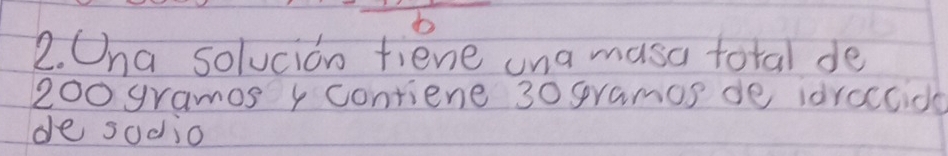 b
2. Una solución tiene una masa total de
200 gramos y contiene 30 gramos de idroccido
de sodio